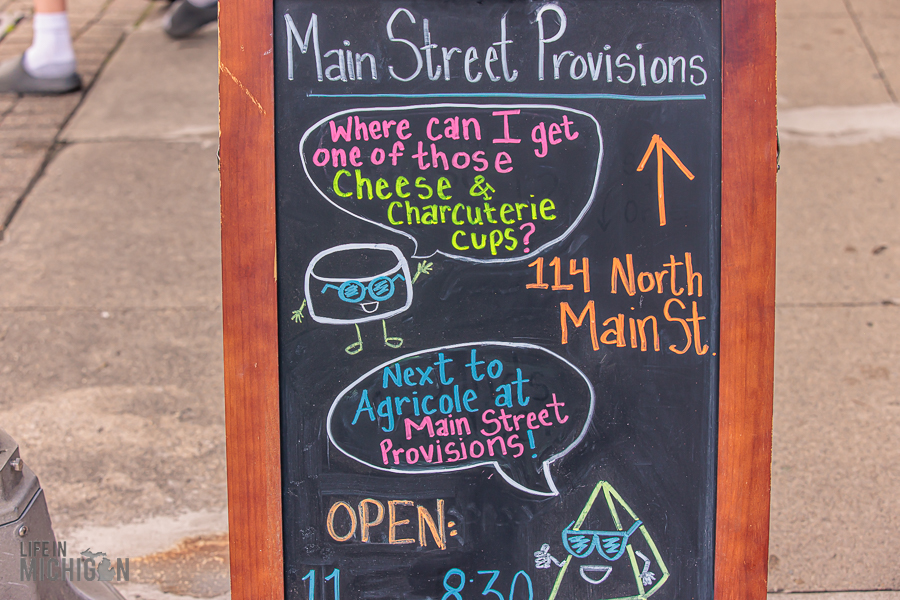 Main Street Provisions
Where can I get
one of those
Cheese &
Charcuterie
cups?
114 North
Main St.
Next to
Agricole at
Main Street
Provisions!
OPEN:
11 8:30
LIFE IN
MICHIGAN